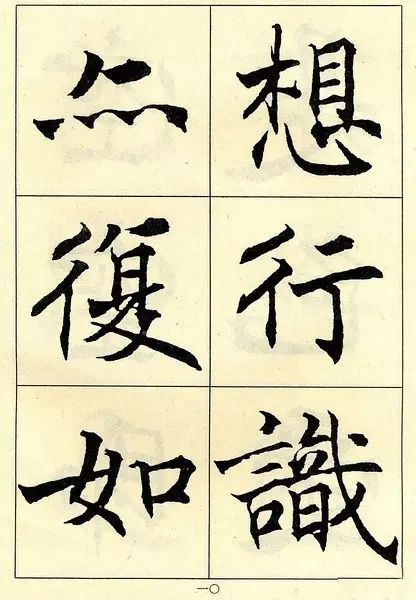 想行識
亦復如
一〇